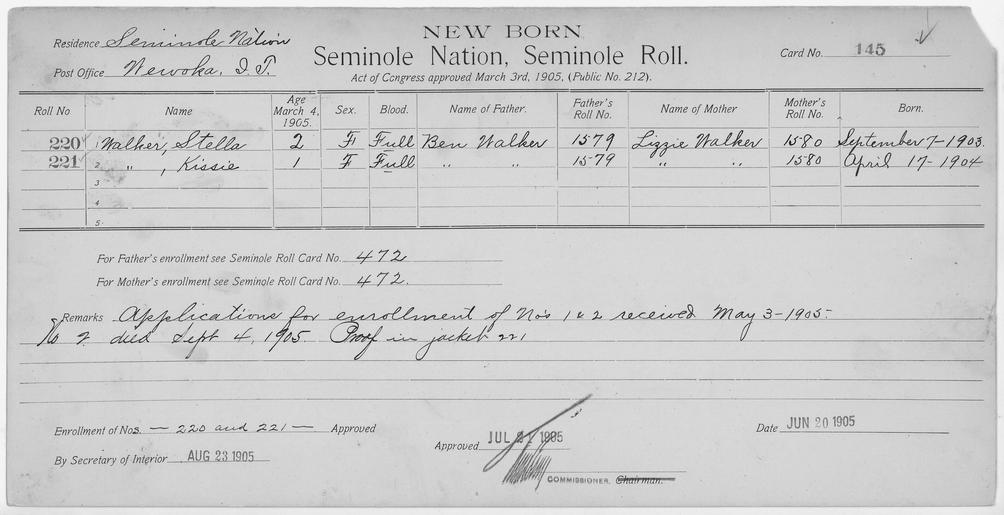 NEW BORN.
Residence Seminole Nation
Seminole Nation, Seminole Roll.
Card No. 145
Post Office Wewoka, I. T.
Act of Congress approved March 3rd, 1905, (Public No. 212).
Roll No Name Age March 4, 1905. Sex. Blood. Name of Father. Father's Roll No. Name of Mother Mother's Roll No. Born.
220 1 Walker, Stella 2 F Full Ben Walker 1579 Lizzie Walker 1580 September 7-1903.
221 2 " , Kissie 1 F Full " " 1579 " " 1580 April 17-1904
3
4
5
For Father's enrollment see Seminole Roll Card No. 472
For Mother's enrollment see Seminole Roll Card No. 472.
Remarks Applications for enrollment of Nos 1 & 2 received May 3-1905-
No 2 died Sept 4, 1905. Proof in jacket 221
Enrollment of Nos. — 220 and 221 — Approved
By Secretary of Interior AUG 23 1905
Approved JUL 21 1905
COMMISSIONER. Chairman.
Date JUN 20 1905